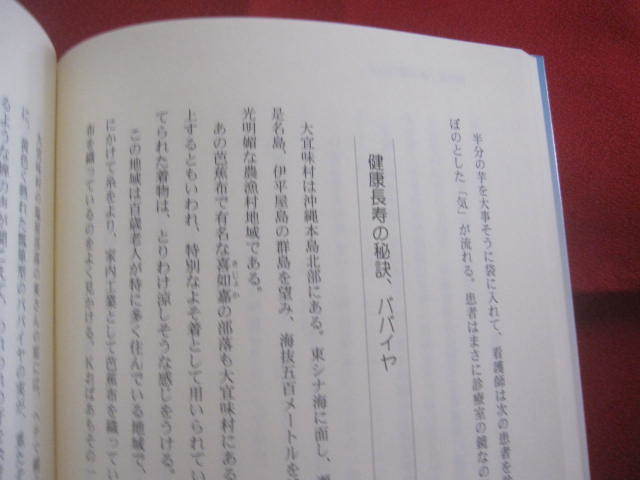 半分の芋を大事そうに袋に入れて、看護師は次の患者を
ぼのとした「気」が流れる。患者はまさに診療室の鏡なの
健康長寿の秘訣、パパイヤ
大宜味村は沖縄本島北部にある。東シナ海に面し、
是名島、伊平屋島の群島を望み、海抜五百メートルを
光明媚な農漁村地域である。
あの芭蕉布で有名な喜如嘉の部落も大宜味村にある
きじょか
上するともいわれ、特別なよそ着として用いられてい
てられた着物は、とりわけ涼しそうな感じをうける。
この地域は百歳老人が特に多く住んでいる地域で、
にかけて糸をより、家内工業として芭蕉布を織ってい
布を織っているのをよく見かける。Kおばあもその一